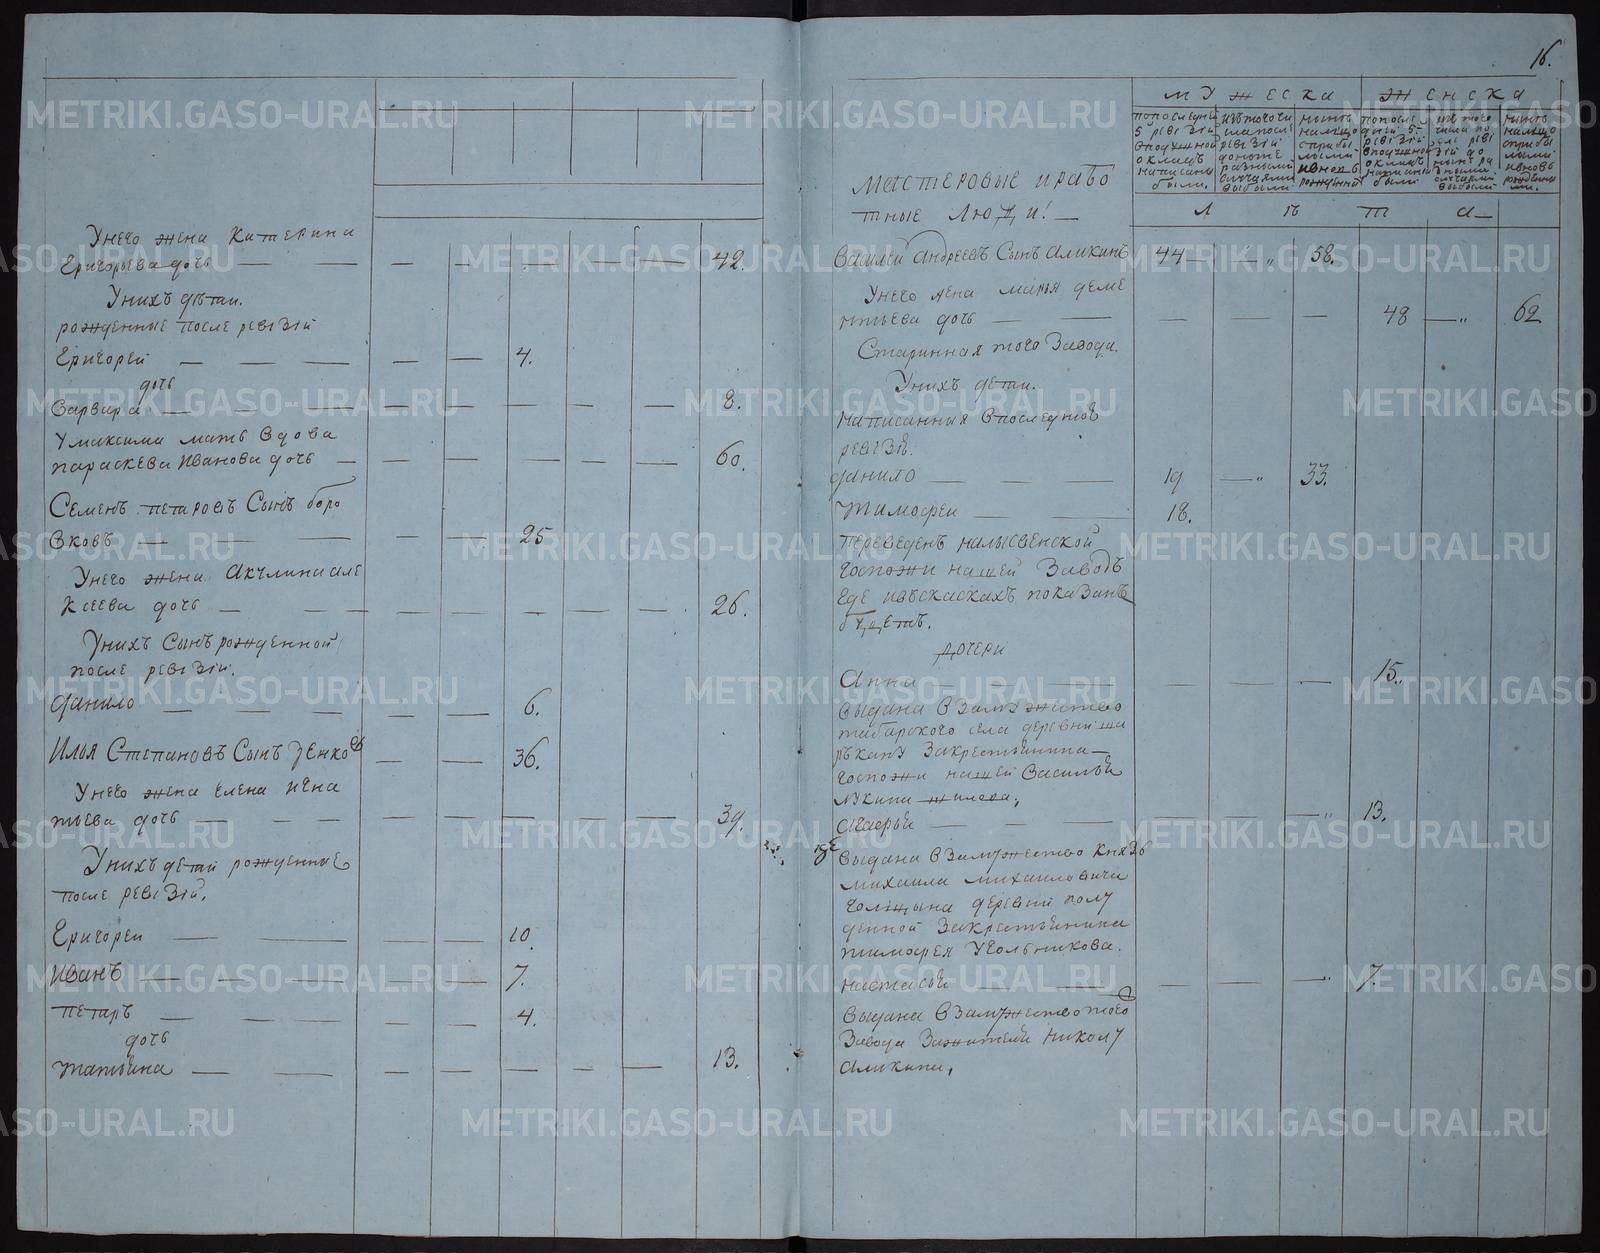 Унего жена Катерина
Григорьева дочь — — — — — 42.
Унихъ дѣти.
рожденные после ревiзiи
Григорей — — — — 4.
дочь
Варвара — — — — 8.
Умаксима мать Вдова
параскева Иванова дочь — — — 60.
Семенъ петаровъ Сынъ боро
вковъ — — — 25
Унего жена Акулина але
ксеева дочь — — — — 26.
Унихъ Сынъ рожденной
после ревiзiи.
данило — — — — 6.
Илья Степановъ Сынъ Зенковъ — — 36.
Унего жена елена игна
тьева дочь — — — — 39.
Унихъ дети рожденные
после ревiзiи.
Григореи — — — — 10.
Иванъ — — — — 7.
петаръ — — — — 4.
дочь
татьяна — — — — 13.
16.
мужеска женска
попоследней 5 ревiзiи вподушной окладъ написаны были.
изътого числапосле ревiзiи донине разными случаями выбыли
нынѣ налицо сприбылыми ивновь рожденными
попоследней 5 ревiзiи вподушной окладъ написаны были
изъ того числа после ревiзiи до ныне разными случаями выбыли
нынѣ налицо сприбылыми ивновь рожденными.
Л ѣ т а
мастеровые ирабо
тные Люди! —
Василей Андреевъ Сынъ Аликинъ 44 — " 58.
Унего жена марья деме
нтьева дочь — — — — — 48 — " 62
Старинная того Завода.
Унихъ дети.
написанныя Впоследнюю
ревiзiю.
данило — — — 19 — " 33.
тимофеи — — 18.
переведенъ налысвенской
госпожи нашей Заводъ
где ивъскаскахъ показанъ
будетъ.
дочери
Анна — — — — — — 15.
выдана Взамужество
табарского села деревни
Закрестьянина
госпожи нашей Василья
лукина жилева;
— — — — — " 13.
выдана Взамужество Князь
михаила михаиловича
голицына деревни полу
денной Закрестьянина
тимофея Угольникова.
настасья — — — — — " 7.
выдана Взамужество того
Завода Зажителя николу
Аликина.
METRIKI.GASO-URAL.RU